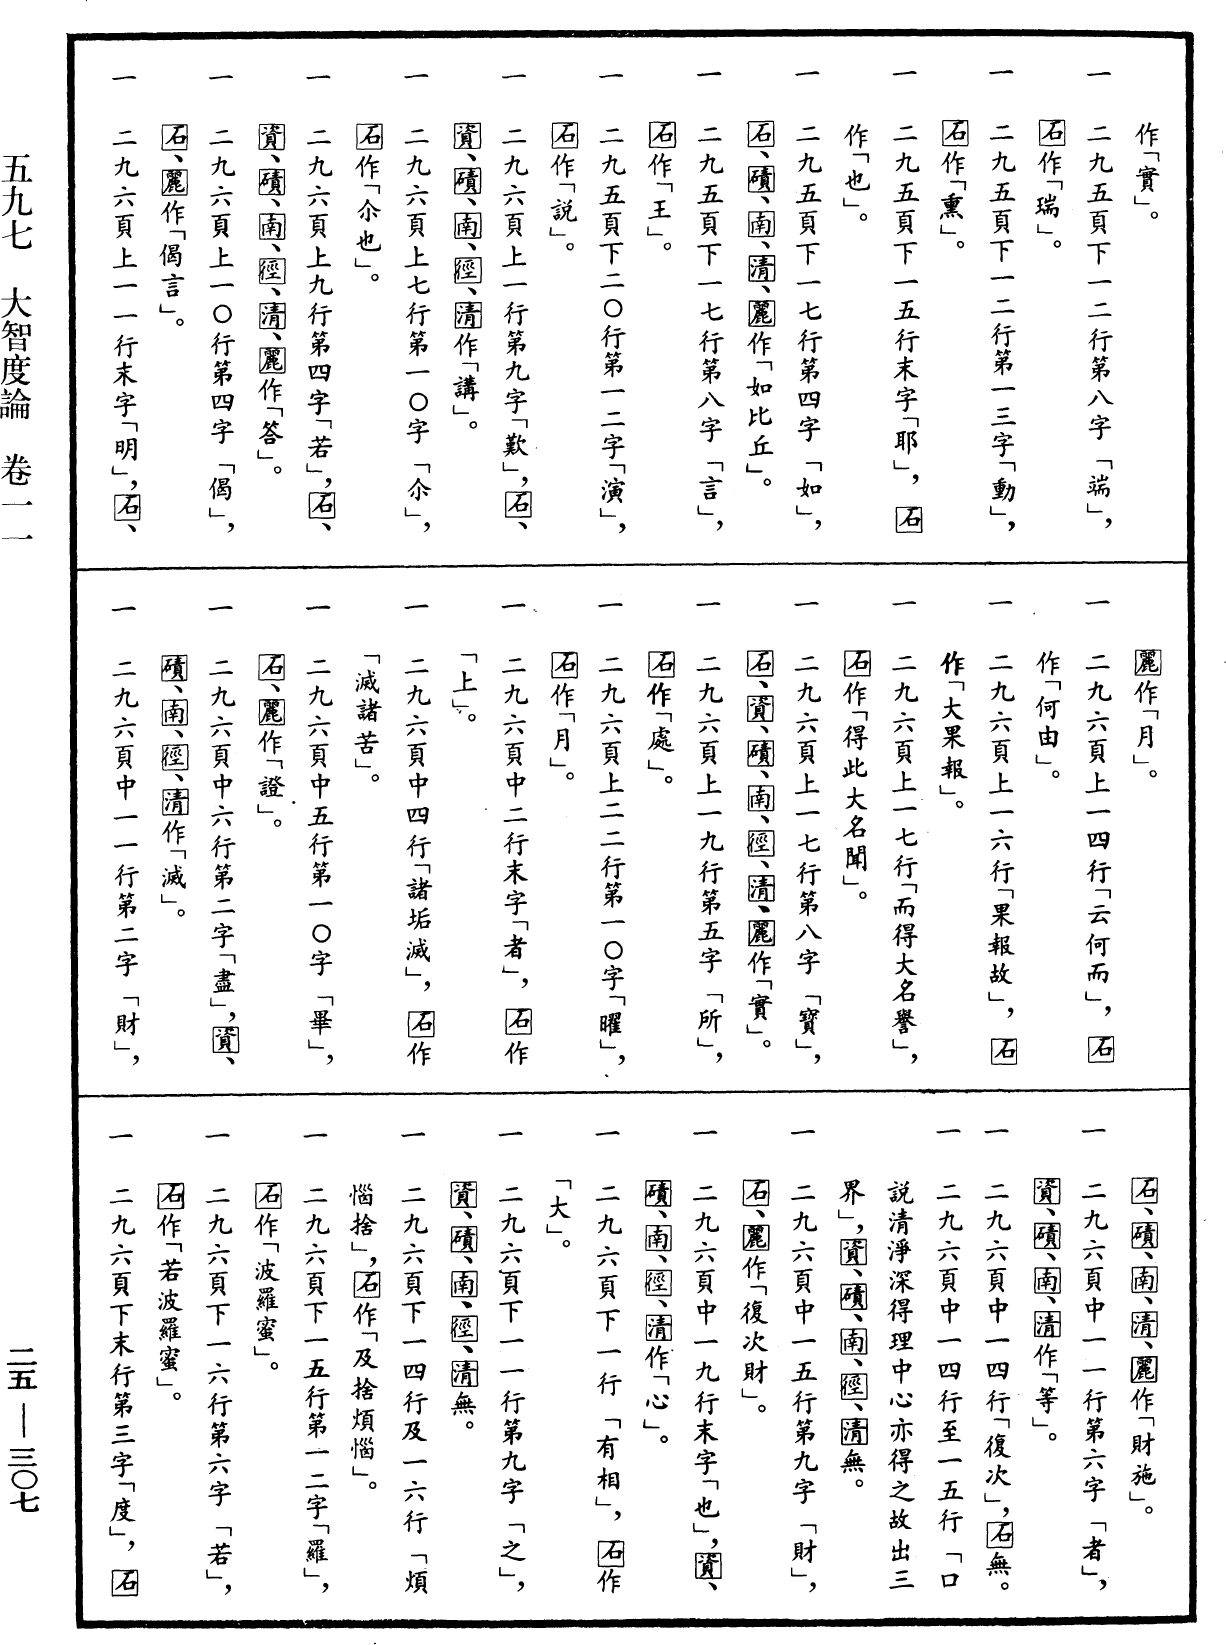 作「實」。
一　二九五頁下一二行第八字「端」，
石作「瑞」。
一　二九五頁下一二行第一三字「動」，
石作「熏」。
一　二九五頁下一五行末字「耶」，石
作「也」。
一　二九五頁下一七行第四字「如」，
石、磧、南、清、麗作「如比丘」。
一　二九五頁下一七行第八字「言」，
石作「王」。
一　二九五頁下二〇行第一二字「演」，
石作「説」。
一　二九六頁上一行第九字「歎」，石、
資、磧、南、徑、清作「講」。
一　二九六頁上七行第一〇字「尒」，
石作「尒也」。
一　二九六頁上九行第四字「若」，石、
資、磧、南、徑、清、麗作「答」。
一　二九六頁上一〇行第四字「偈」，
石、麗作「偈言」。
一　二九六頁上一一行末字「明」，石、
麗作「月」。
一　二九六頁上一四行「云何而」，石
作「何由」。
一　二九六頁上一六行「果報故」，石
作「大果報」。
一　二九六頁上一七行「而得大名譽」，
石作「得此大名聞」。
一　二九六頁上一七行第八字「寶」，
石、資、磧、南、徑、清、麗作「實」。
一　二九六頁上一九行第五字「所」，
石作「處」。
一　二九六頁上二二行第一〇字「曜」，
石作「月」。
一　二九六頁中二行末字「者」，石作
「上」。
一　二九六頁中四行「諸垢滅」，石作
「滅諸苦」。
一　二九六頁中五行第一〇字「畢」，
石、麗作「證」。
一　二九六頁中六行第二字「盡」，資、
磧、南、徑、清作「滅」。
一　二九六頁中一一行第二字「財」，
石、磧、南、清、麗作「財施」。
一　二九六頁中一一行第六字「者」，
資、磧、南、清作「等」。
一　二九六頁中一四行「復次」，石無。
一　二九六頁中一四行至一五行「口
説清淨深得理中心亦得之故出三
界」，資、磧、南、徑、清無。
一　二九六頁中一五行第九字「財」，
石、麗作「復次財」。
一　二九六頁中一九行末字「也」，資、
磧、南、徑、清作「心」。
一　二九六頁下一行「有相」，石作
「大」。
一　二九六頁下一一行第九字「之」，
資、磧、南、徑、清無。
一　二九六頁下一四行及一六行「煩
惱捨」，石作「及捨煩惱」。
一　二九六頁下一五行第一二字「羅」，
石作「波羅蜜」。
一　二九六頁下一六行第六字「若」，
石作「若波羅蜜」。
一　二九六頁下末行第三字「度」，石
五九七　大智度論　卷一一
二五——三〇七